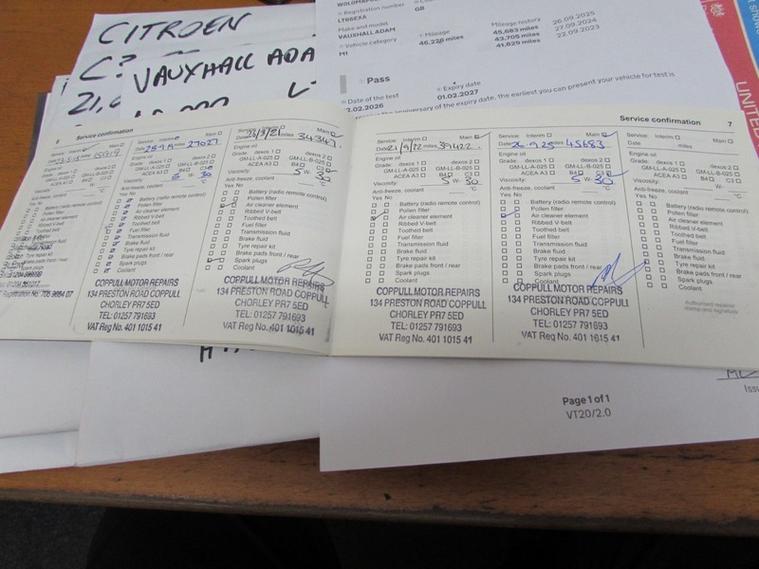 CITROEN
VAUXHALL ADA
Registration number
LT66EXA
GB
Make and model
VAUXHALL ADAM
Vehicle category
M1
Mileage
46,226 miles
Mileage history
45,683 miles 26.09.2025
43,705 miles 27.09.2024
41,829 miles 22.09.2023
Pass
Date of the test
.02.2026
Expiry date
01.02.2027
anniversary of the expiry date, the earliest you can present your vehicle for test is
UNITED
Service confirmation
Service: Interim Main
27027
Engine oil:
Grade: dexos 1 dexos 2
GM-LL-A-025 GM-LL-B-025
ACEA A3 B4 C3
Viscosity: 5 W- 30
Anti-freeze, coolant °C
Yes No
Battery (radio remote control)
Pollen filter
Air cleaner element
Ribbed V-belt
Toothed belt
Fuel filter
Transmission fluid
Brake fluid
Tyre repair kit
Brake pads front / rear
Spark plugs
Coolant
COPPULL MOTOR REPAIRS
134 PRESTON ROAD COPPULL
CHORLEY PR7 5ED
TEL: 01257 791693
VAT Reg No. 401 1015 41
Service: Interim Main
34347
Engine oil:
Grade: dexos 1 dexos 2
GM-LL-A-025 GM-LL-B-025
ACEA A3 B4 C3
Viscosity: 5 W- 30
Anti-freeze, coolant °C
Yes No
Battery (radio remote control)
Pollen filter
Air cleaner element
Ribbed V-belt
Toothed belt
Fuel filter
Transmission fluid
Brake fluid
Tyre repair kit
Brake pads front / rear
Spark plugs
Coolant
COPPULL MOTOR REPAIRS
134 PRESTON ROAD COPPULL
CHORLEY PR7 5ED
TEL: 01257 791693
VAT Reg No. 401 1015 41
Service confirmation 7
Service: Interim Main
Date 21/9/22 miles 39422
Engine oil:
Grade: dexos 1 dexos 2
GM-LL-A-025 GM-LL-B-025
ACEA A3 B4 C3
Viscosity: 5 W- 30
Anti-freeze, coolant °C
Yes No
Battery (radio remote control)
Pollen filter
Air cleaner element
Ribbed V-belt
Toothed belt
Fuel filter
Transmission fluid
Brake fluid
Tyre repair kit
Brake pads front / rear
Spark plugs
Coolant
COPPULL MOTOR REPAIRS
134 PRESTON ROAD COPPULL
CHORLEY PR7 5ED
TEL: 01257 791693
VAT Reg No. 401 1015 41
Service: Interim Main
Date 26.9.25 miles 45683
Engine oil:
Grade: dexos 1 dexos 2
GM-LL-A-025 GM-LL-B-025
ACEA A3 B4 C3
Viscosity: 5 W- 30
Anti-freeze, coolant °C
Yes No
Battery (radio remote control)
Pollen filter
Air cleaner element
Ribbed V-belt
Toothed belt
Fuel filter
Transmission fluid
Brake fluid
Tyre repair kit
Brake pads front / rear
Spark plugs
Coolant
COPPULL MOTOR REPAIRS
134 PRESTON ROAD COPPULL
CHORLEY PR7 5ED
TEL: 01257 791693
VAT Reg No. 401 1015 41
Service: Interim Main
Date miles
Engine oil:
Grade: dexos 1 dexos 2
GM-LL-A-025 GM-LL-B-025
ACEA A3 B4 C3
Viscosity: W-
Anti-freeze, coolant °C
Yes No
Battery (radio remote control)
Pollen filter
Air cleaner element
Ribbed V-belt
Toothed belt
Fuel filter
Transmission fluid
Brake fluid
Tyre repair kit
Brake pads front / rear
Spark plugs
Coolant
Authorised repairer
stamp and signature
Page 1 of 1
VT20/2.0